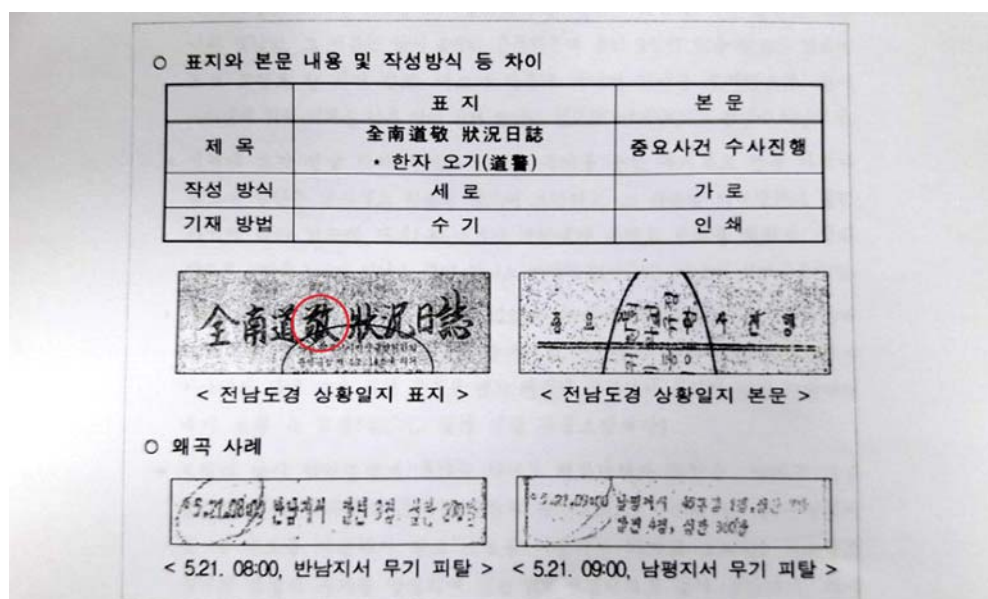 ○ 표지와 본문 내용 및 작성방식 등 차이
표 지 본 문
제 목 全南道敬 狀況日誌 중요사건 수사진행
• 한자 오기(道警)
작성 방식 세 로 가 로
기재 방법 수 기 인 쇄
全南道敬狀況日誌
< 전남도경 상황일지 표지 > < 전남도경 상황일지 본문 >
○ 왜곡 사례
5.21.08:00 반남지서 칼빈 3정 실탄
5.21.09:00 남평지서
칼빈 4정, 실탄
< 5.21. 08:00, 반남지서 무기 피탈 > < 5.21. 09:00, 남평지서 무기 피탈 >